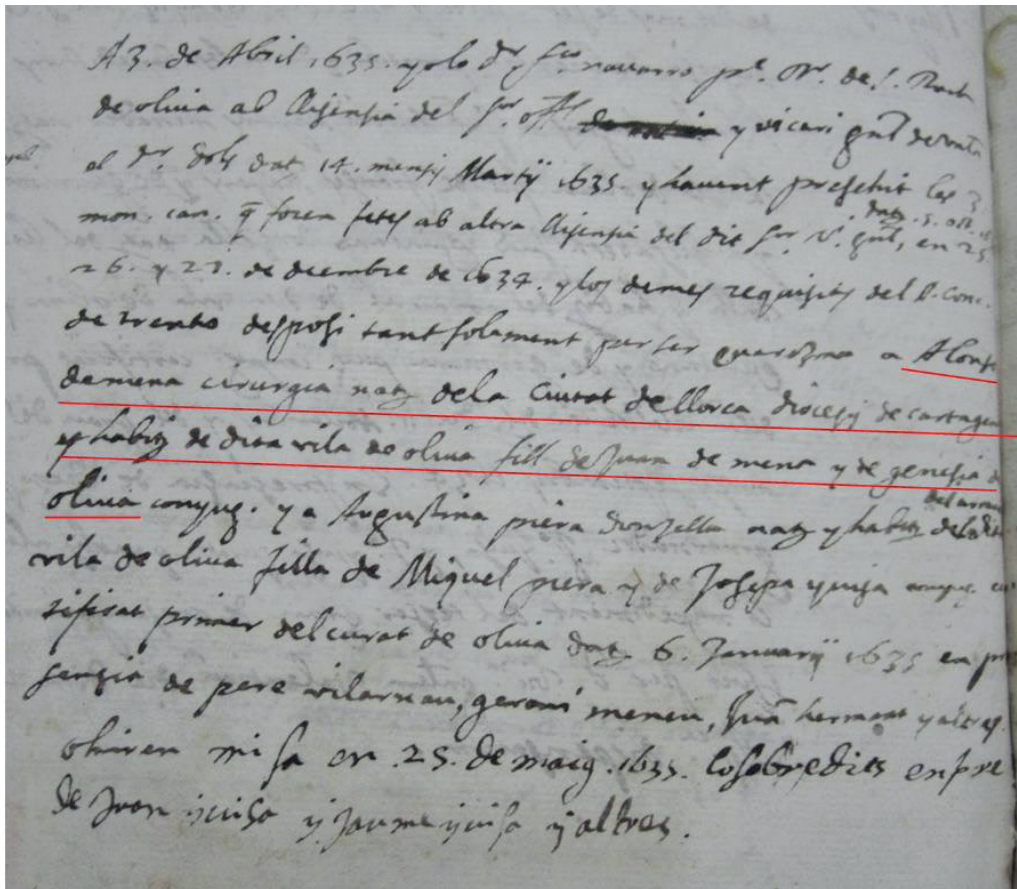 A 3. de Abril 1635. yo lo Dr. navarro pre. de
de oliva ab llisensia del Sor. y vicari gnl.
el Dr. dat 14. mensis Martij 1635. y havent presehit les 3
mon. can. q foren fetes ab altra llisensia del dit Sor. V. gnl, en 25
26. y 27. de decembre de 1634. y los demes requisits del S. Con.
de trento desposi tantsolament per ser quaresma a Alonso
de mena cirurgia nat. de la Ciutat de llorca diocesis de cartagena
y habit. de dita vila de oliva fill de Juan de mena y de genesia de
oliva conjug. y a Augustina piera donzella nat. y habit. de la dita
vila de oliva filla de Miquel piera y de Josepa yvisa conjug. cer
tificat primer del curat de oliva dat. 6. Januarij 1635 en pre
sensia de pere vilarnau, geroni meneu, Jua hermano y altres.
ohiren misa en 25. de maig. 1635. los sobredits en pre
de Joan yvisa y Jaume yvisa y altres.